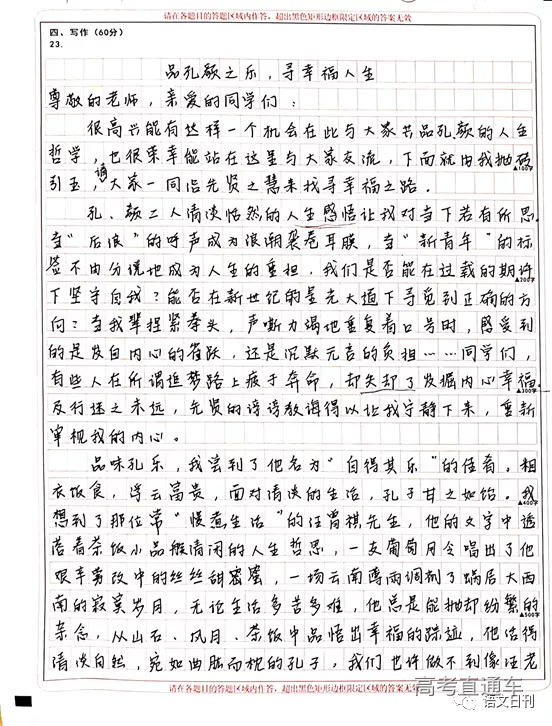 请在各题目的答题区域内作答，超出黑色矩形边框限定区域的答案无效
四、写作（60分）
23.
品孔颜之乐，寻幸福人生
尊敬的老师，亲爱的同学们：
很高兴能有这样一个机会在此与大家共品孔颜的人生
哲学，也很荣幸能站在这里与大家交流，下面就由我抛砖
▲100字
引玉，请大家一同沿先贤之慧来找寻幸福之路。
孔、颜二人清淡恬然的人生感悟让我对当下若有所思。
当“后浪”的呼声成为浪潮裹卷耳膜，当“新青年”的标
签不由分说地成为人生的重担，我们是否能在过载的期许
▲200字
下坚守自我？能否在新世纪的星光大道下寻觅到正确的方
向？当我辈捏紧拳头，声嘶力竭地重复着口号时，感受到
的是发自内心的雀跃，还是沉默无言的负担……同学们，
有些人在所谓追梦路上疲于奔命，却失却了发掘内心幸福。
▲300字
及行迷之未远，先贤的谆谆教诲得以让我宁静下来，重新
审视我的内心。
品味孔乐，我尝到了他名为“自得其乐”的佳肴。粗
衣饭食，浮云富贵，面对清淡的生活，孔子甘之如饴。我
▲400字
想到了那位常“慢煮生活”的汪曾祺先生，他的文字中透
着着茶饭小品般清闲的人生哲思，一支葡萄月令唱出了他
艰辛劳改中的丝丝甜蜜蜜，一场云南雨调剂了蜗居大西
南的寂寞岁月，无论生活多苦多难，他总是能抛却纷繁的
▲500字
杂念，从山石、风月、茶饭中品悟出幸福的踪迹，他活得
清淡自然，宛如曲肱而枕的孔子，我们也许做不到像汪老
请在各题目的答题区域内作答，超出黑色矩形边框限定区域的答案无效
高考直通车
语文日刊